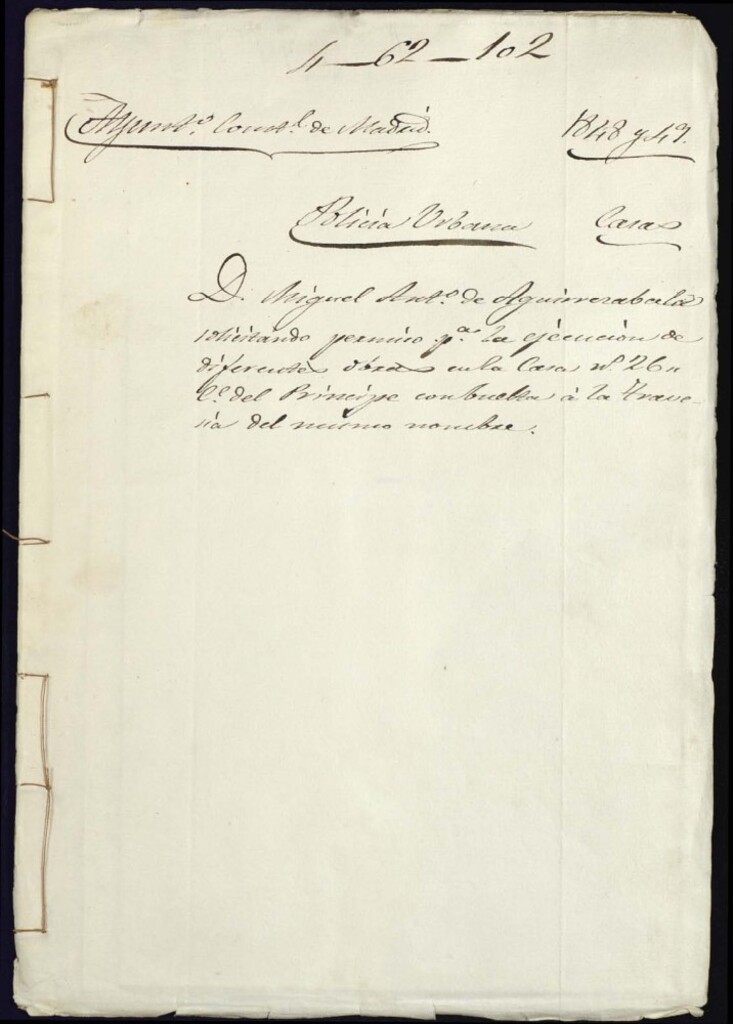 4-62-102
Ayuntº. Constl. de Madrid.
1848 y 49.
Policia Urbana
Casas
D. Miguel Antº. de Aguirrezabala
solicitando permiso pª. la ejecucion de
diferentes obras en la Casa nº. 26 "
Cº. del Principe con buelta à la trave-
sia del mismo nombre.